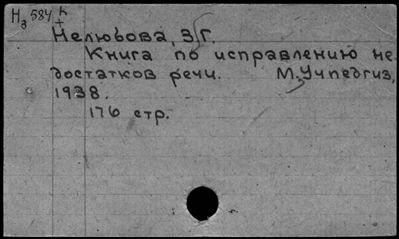 Н₃ 584 К
+
Нелюбова, З. Г.
Книга по исправлению не-
достатков речи. М., Учпедгиз,
1938.
176 стр.